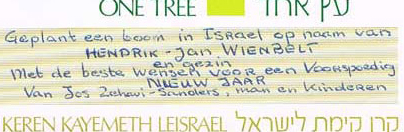 ONE TREE עץ אחד
Geplant een boom in Israel op naam van
HENDRIK-Jan WIENBELT
en gezin
Met de beste wensen voor een Voorspoedig
NIEUW JAAR
Van Jos Zehavi-Sanders, man en Kinderen
KEREN KAYEMETH LEISRAEL קרן קימת לישראל